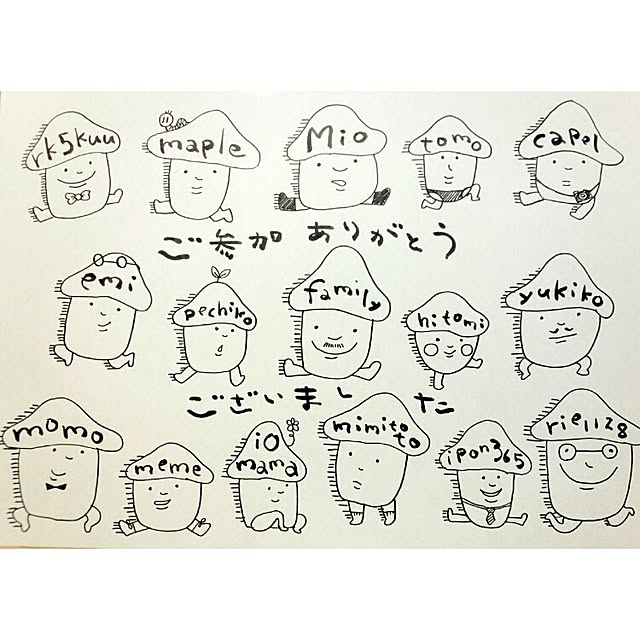 rk5kuu maple Mio tomo capel
ご参加 ありがとう
emi pechiko family hitomi yukiko
ございました
momo meme io mama mimitoto ipon365 rie1128